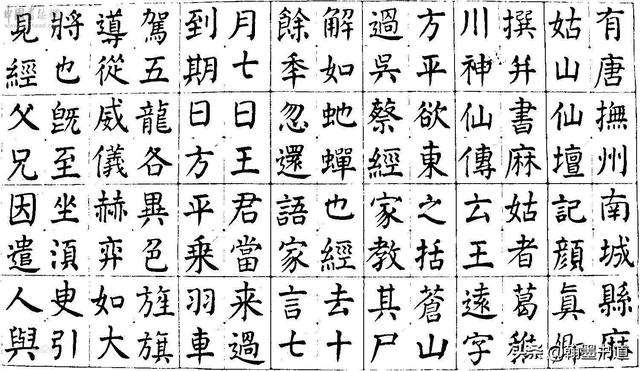 有唐撫州南城縣麻
姑山仙壇記顏眞卿
撰并書麻姑者葛稚
川神仙傳云王遠字
方平欲東之括蒼山
過吳蔡經家教其尸
解如虵蟬也經去十
餘秊忽還語家言七
月七日王君當来過
到期日方平乗羽車
駕五龍各異色旌旗
導從威儀赫弈如大
將也旣至坐須臾引
見經父兄因遣人與
头条 @翰墨书道